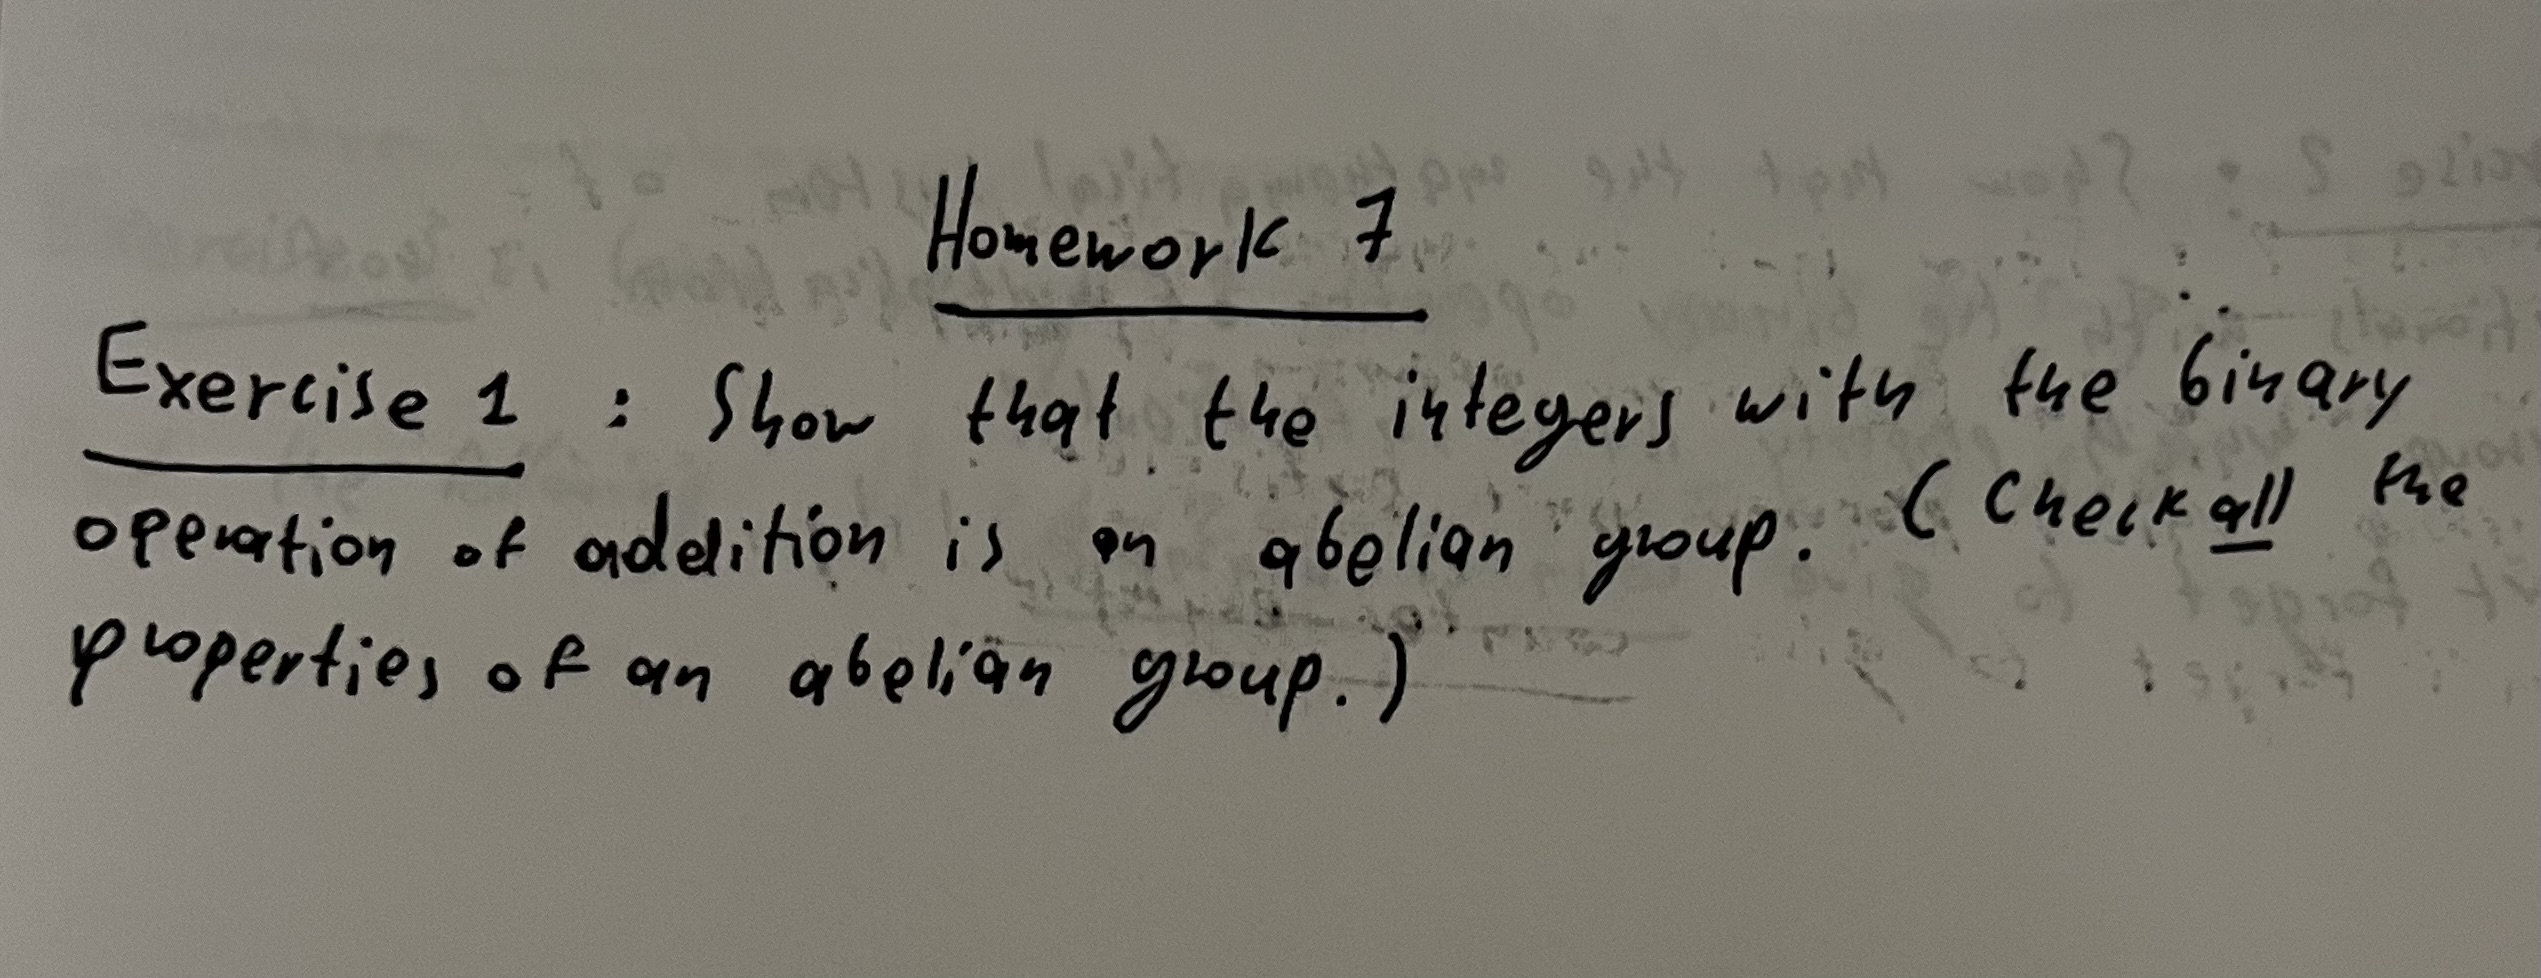 Homework 7
Exercise 1 : Show that the integers with the binary
operation of addition is an abelian group. (Check all the
properties of an abelian group.)